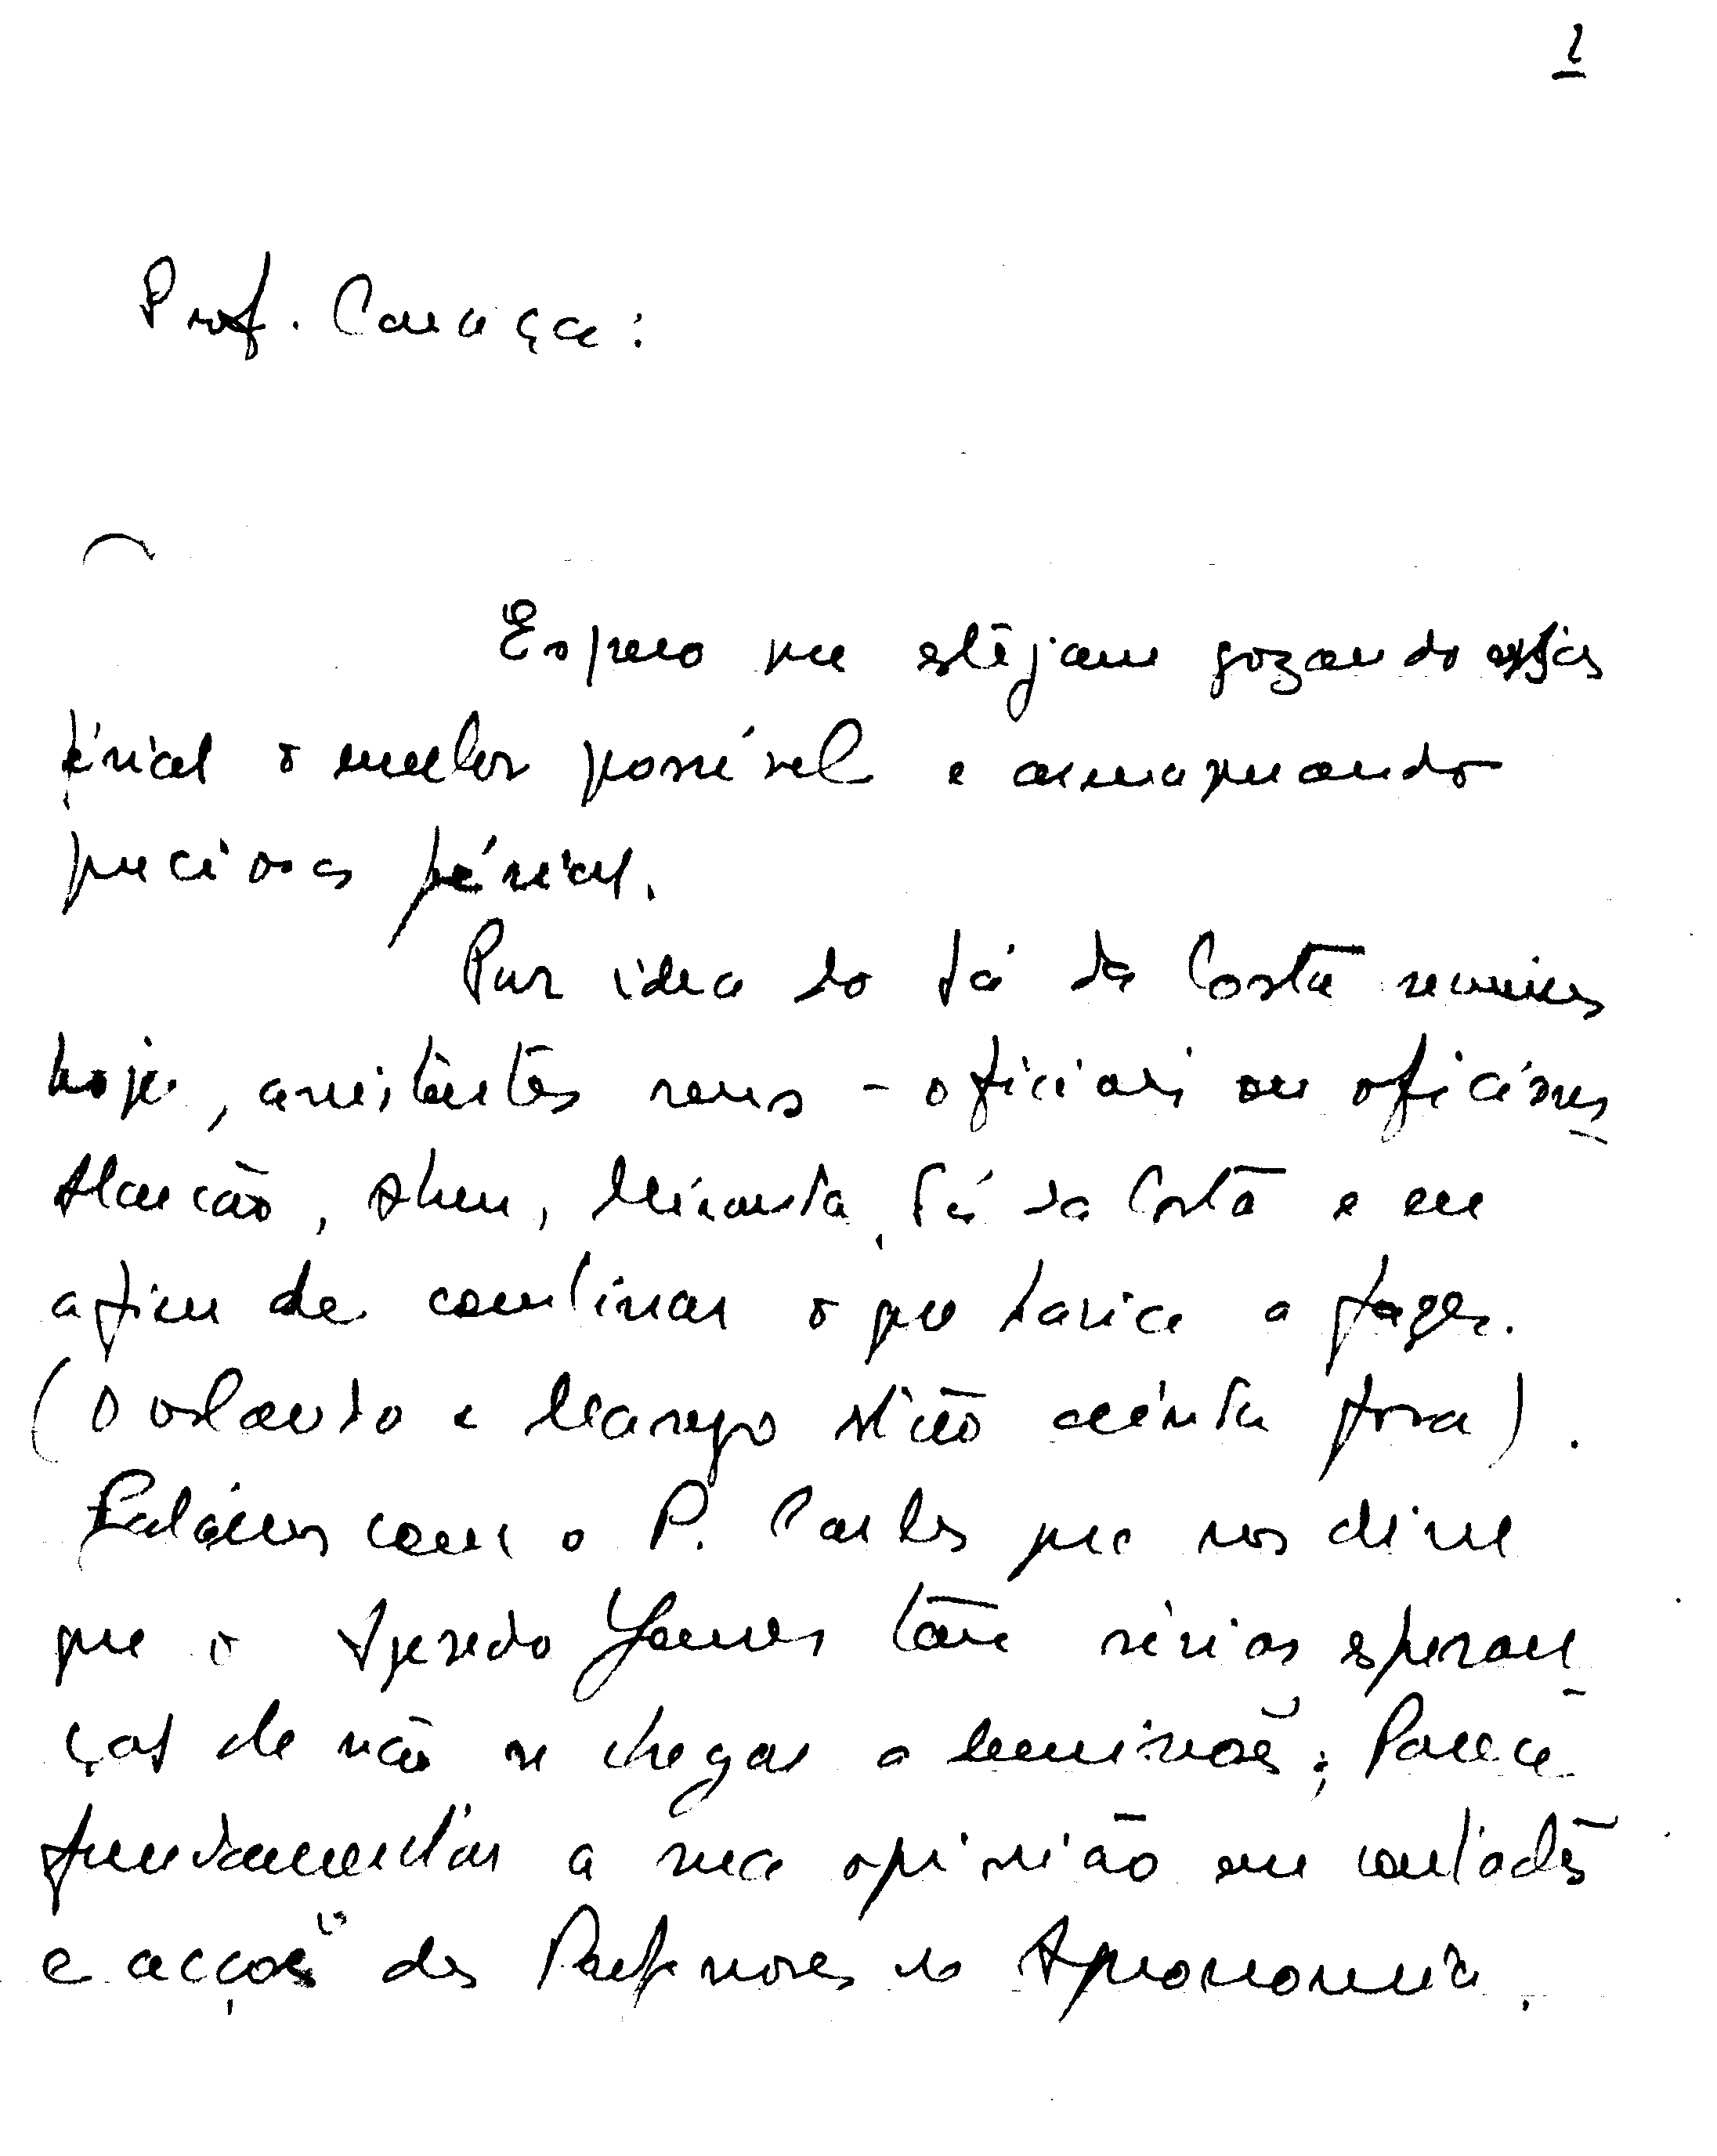 2
Prof. Caraça:
Espero que estejam gozando estas
férias o melhor possível e armazenando
preciosas férias.
Por idea do Sá da Costa reunimos
hoje, assistentes seus - oficiais ou oficiosos
Alarcão, Abreu, Miranda, Sá da Costa e eu
afim de combinar o que havia a fazer.
(Orlando e estão ainda fora).
Falámos com o P. Carlos que nos disse
que o Azevedo Gomes tem sérias esperan
ças de não se chegar a demissões; Parece
fundamentar a sua opinião em contactos
e acções dos Professores de Agronomia.